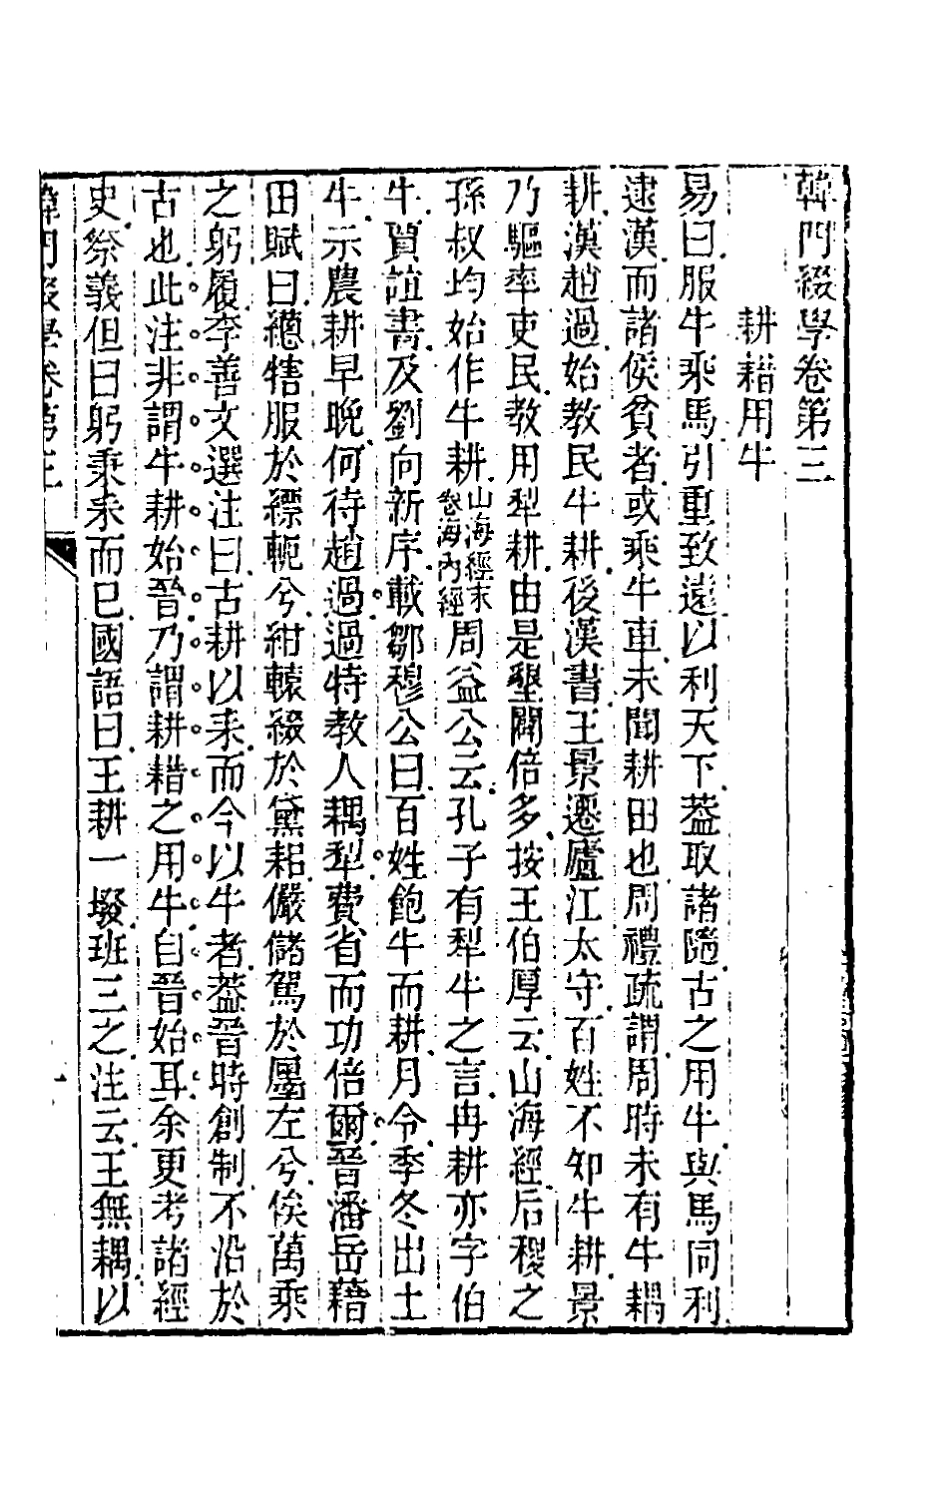 韓門綴學卷第三
耕耤用牛
易曰服牛乘馬引重致遠以利天下葢取諸隨古之用牛與馬同利
逮漢而諸侯貧者或乘牛車未聞耕田也周禮疏謂周時未有牛耦
耕漢趙過始教民牛耕後漢書王景遷廬江太守百姓不知牛耕景
乃驅率吏民教用犁耕由是墾闢倍多按王伯厚云山海經后稷之
孫叔均始作牛耕山海經末卷海內經周益公云孔子有犁牛之言冉耕亦字伯
牛賈誼書及劉向新序載鄒穆公曰百姓飽牛而耕月令季冬出土
牛示農耕早晚何待趙過過特教人耦犁費省而功倍爾晉潘岳藉
田賦曰繐犗服於縹軛兮紺轅綴於黛耜儼儲駕於廛左兮俟萬乘
之躬履李善文選注曰古耕以耒而今以牛者葢晉時創制不沿於
古也此注非謂牛耕始晉乃謂耕耤之用牛自晉始耳余更考諸經
史祭義但曰躬秉耒而已國語曰王耕一墢班三之注云王無耦以
韓門綴學卷第三
一